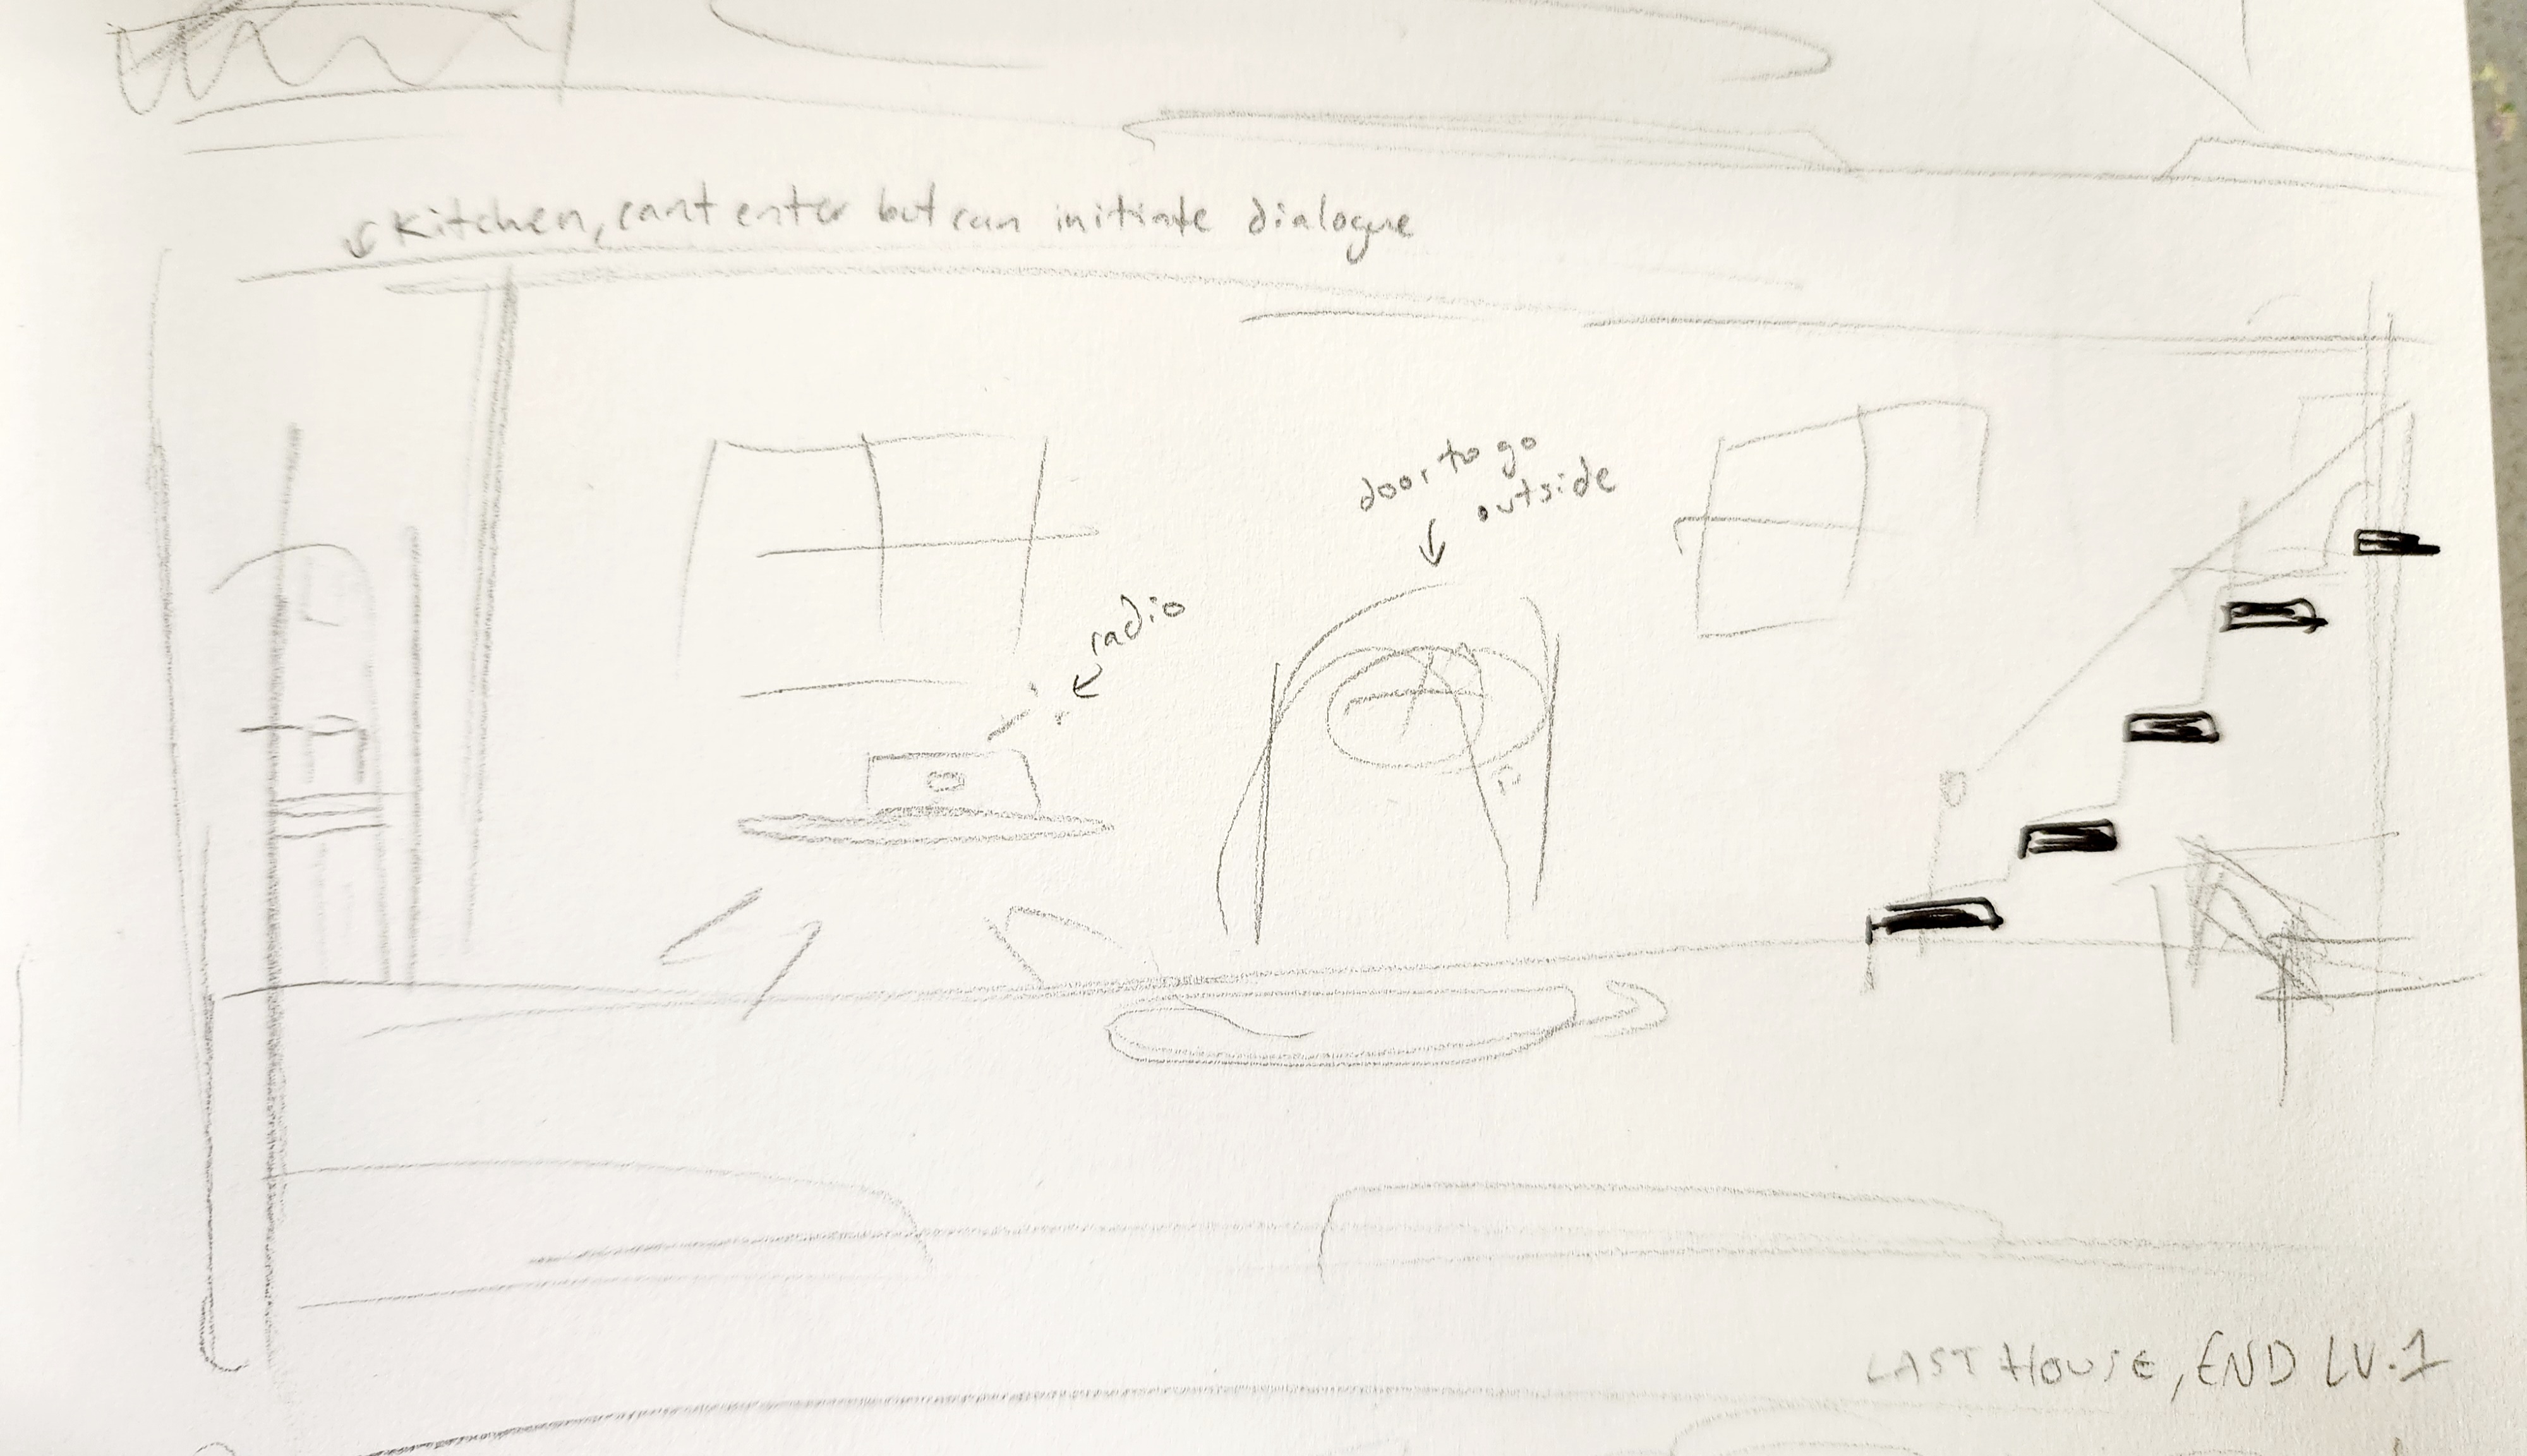 Kitchen, cant enter but can initiate dialogue
door to go
outside
radio
LAST HOUSE, END LV.1